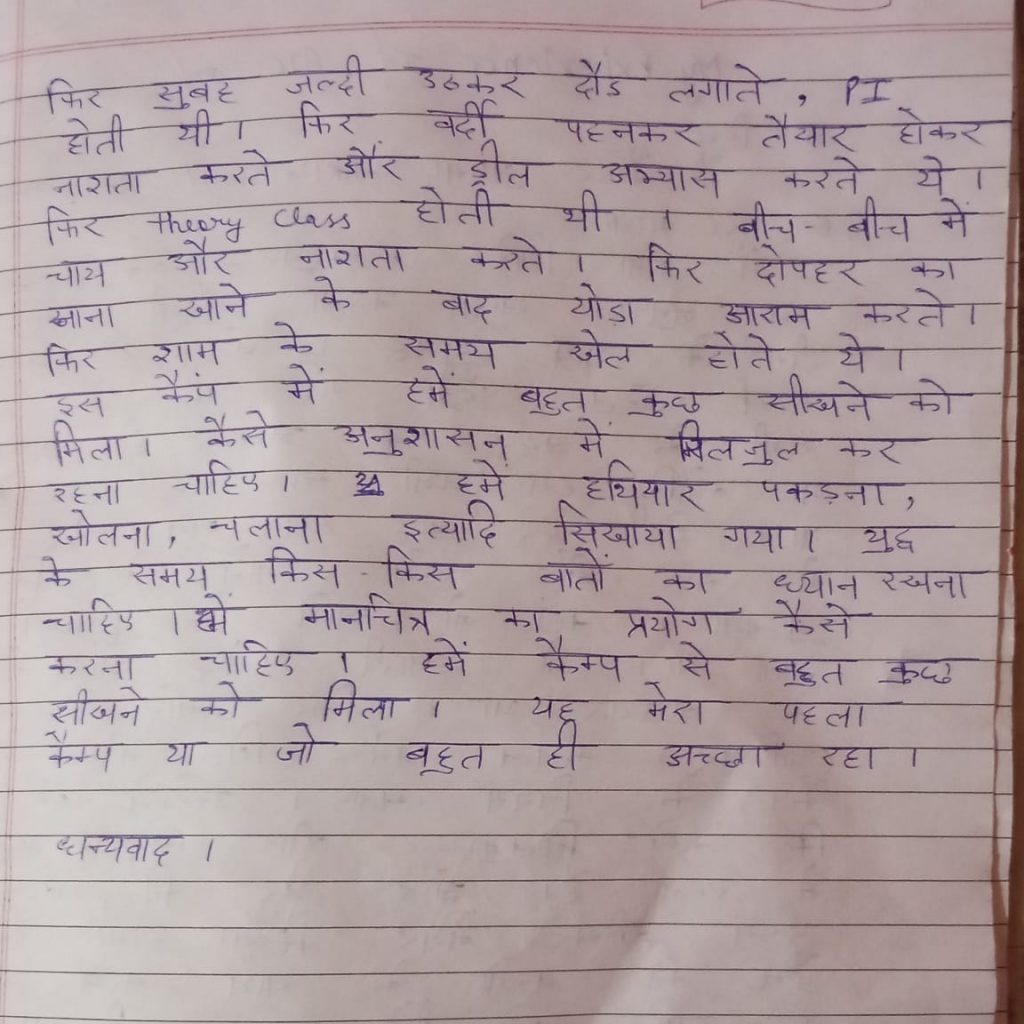 फिर सुबह जल्दी उठकर दौड लगाते, PI
होती थी। फिर वर्दी पहनकर तैयार होकर
नाशता करते और ड्रील अभ्यास करते थे।
फिर theory class होती थी । बीच-बीच में
चाय और नाशता करते। फिर दोपहर का
खाना खाने के बाद थोडा आराम करते।
फिर शाम के समय खेल होते थे।
इस कैंप में हमें बहुत कुछ सीखने को
मिला। कैसे अनुशासन में मिलजुल कर
रहना चाहिए। हमें हथियार पकड़ना,
खोलना, चलाना इत्यादि सिखाया गया। युद्ध
के समय किस-किस बातों का ध्यान रखना
चाहिए। हमें मानचित्र का प्रयोग कैसे
करना चाहिए । हमें कैम्प से बहुत कुछ
सीखने को मिला । यह मेरा पहला
कैम्प था जो बहुत ही अच्छा रहा ।
धन्यवाद ।